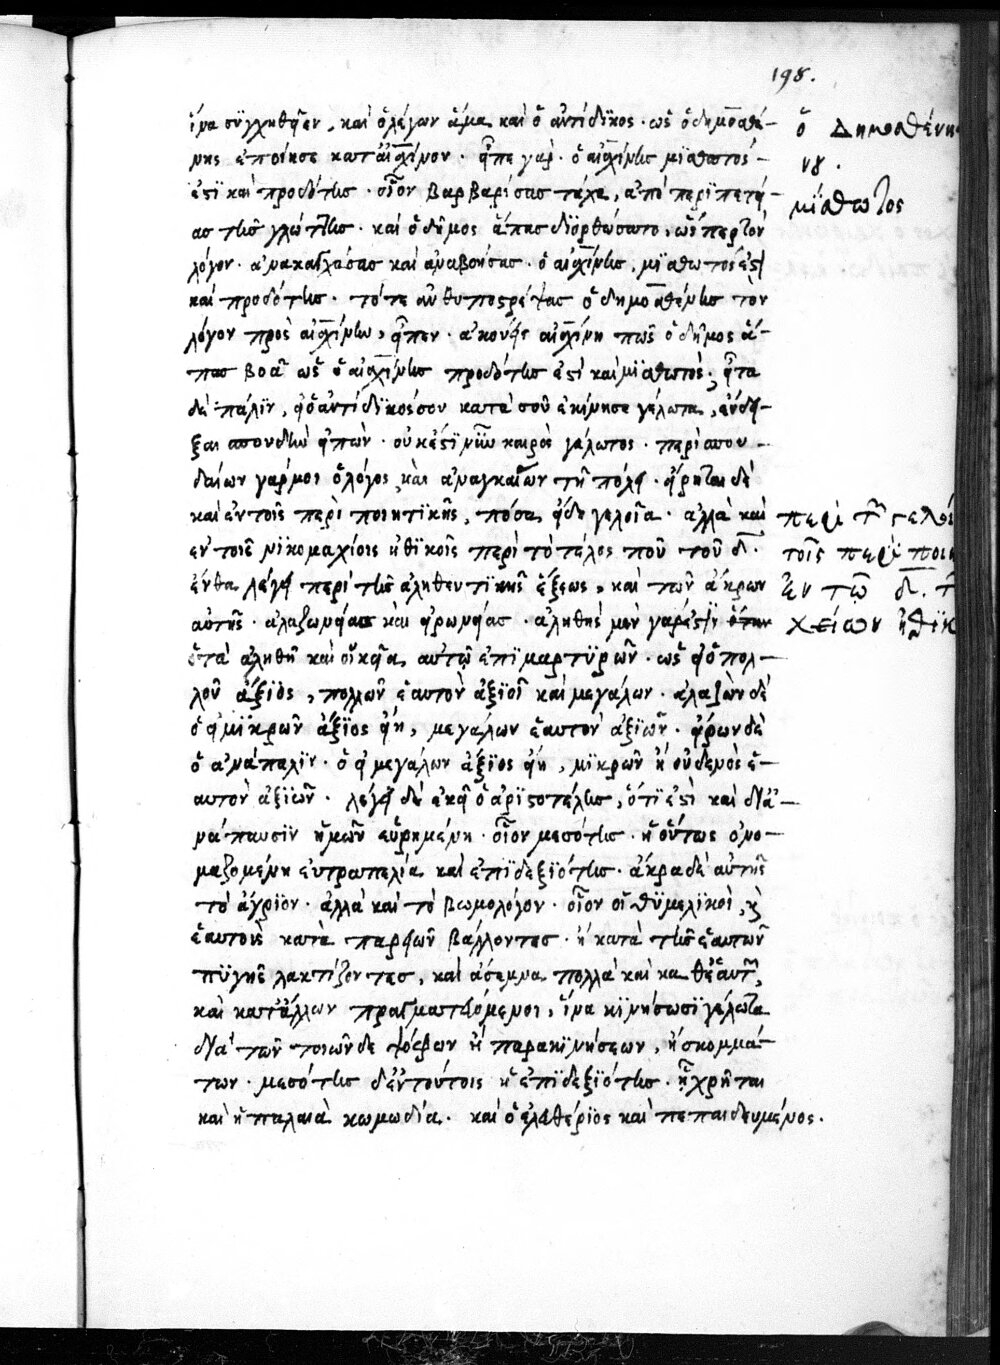 198.
ἵνα συγχηθεῖεν, καὶ ὁ λέγων ἅμα καὶ ὁ ἀντίδικος. ὡς ὁ δημοσθέ-
νης ἐποίησε κατ' αἰσχίνου. εἶπε γὰρ. ὁ αἰσχίνης μίσθωτός
ἐστι καὶ προδότης. οἷον βαρβαρίσας τάχα, ἀπὸ περιπετεί-
ας τῆς γλώττης. καὶ ὁ δῆμος ἅπας διορθώσατο, ὥσπερ τὸν
λόγον. ἀνακαγχάσας καὶ ἀναβοήσας. ὁ αἰσχίνης, μισθωτός ἐστι
καὶ προδότης. τότε ἀνθυποστρέψας ὁ δημοσθένης τὸν
λόγον πρὸς αἰσχίνην, εἶπεν. ἀκούεις αἰσχίνη πῶς ὁ δῆμος ἅ-
πας βοᾷ ὡς ὁ αἰσχίνης προδότης ἐστὶ καὶ μισθωτός; εἶτα
δὲ πάλιν, εἰ ὁ ἀντίδικός σου κατὰ σοῦ ἐκίνησε γέλωτα, ἐνδεί-
ξαι σπουδὴν εἰπών. οὐκ ἔστι νῦν καιρὸς γέλωτος. περὶ σπου-
δαίων γάρ μοι ὁ λόγος καὶ ἀναγκαίων τῇ πόλει. εἴρηται δὲ
καὶ ἐν τοῖς περὶ ποιητικῆς, πόσα εἴδη γελοῖα. ἀλλὰ καὶ
ἐν τοῖς νικομαχίοις ἠθικοῖς περὶ τὸ τέλος που τοῦ δ.
ἔνθα λέγει περὶ τῆς ἀληθευτικῆς ἕξεως, καὶ τῶν ἄκρων
αὐτῆς. ἀλαζονείας καὶ εἰρωνείας. ἀληθὴς μὲν γάρ ἐστιν
ὁ τὰ ἀληθῆ καὶ οἰκεῖα αὐτῷ ἐπιμαρτυρῶν. ὡς εἰ ὁ πολ-
λοῦ ἄξιος, πολλῶν ἑαυτὸν ἀξιοῖ καὶ μεγάλων. ἀλαζὼν δὲ
ὁ εἰ μικρῶν ἄξιος εἴη, μεγάλων ἑαυτὸν ἀξιῶν. εἴρων δὲ
ὁ ἀνάπαλιν. ὁ εἰ μεγάλων ἄξιος εἴη, μικρῶν ἢ οὐδενὸς ἑ-
αυτὸν ἀξιῶν. λέγει δὲ ἐκεῖ ὁ ἀριστοτέλης, ὅτι ἐστὶ καὶ ἀνά-
παυσιν ἡμῶν εὑρημένη. οἷον μεσότης. ἡ οὕτως ὀνο-
μαζομένη εὐτραπελία καὶ ἐπιδεξιότης. ἄκρα δὲ αὐτῆς
τὸ ἄγριον. ἀλλὰ καὶ τὸ βωμολόχον. οἷον οἱ θυμελικοὶ,
ἑαυτοὺς κατὰ παρειῶν βάλλοντες. ἢ κατὰ τῆς ἑαυτῶν
πυγῆς λακτίζοντες, καὶ ἄσεμνα πολλὰ καὶ καθ' ἑαυτῶν
καὶ κατ' ἄλλων πραγματευόμενοι, ἵνα κινήσωσι γέλωτα
διὰ τῶν τοιῶνδε ψόφων ἢ παρακινήσεων, ἢ σκομμά-
των. μεσότης δ' ἐν τούτοις ἡ ἐπιδεξιότης. ᾗ χρῆται
καὶ ἡ παλαιὰ κωμωδία. καὶ ὁ ἐλευθέριος καὶ πεπαιδευμένος.
ὁ Δημοσθένη
μίσθωτος
περὶ τῶν γελοί
τοῖς περὶ ποιη
ἐν τῷ δ. τῶν
χείων ἠθικ